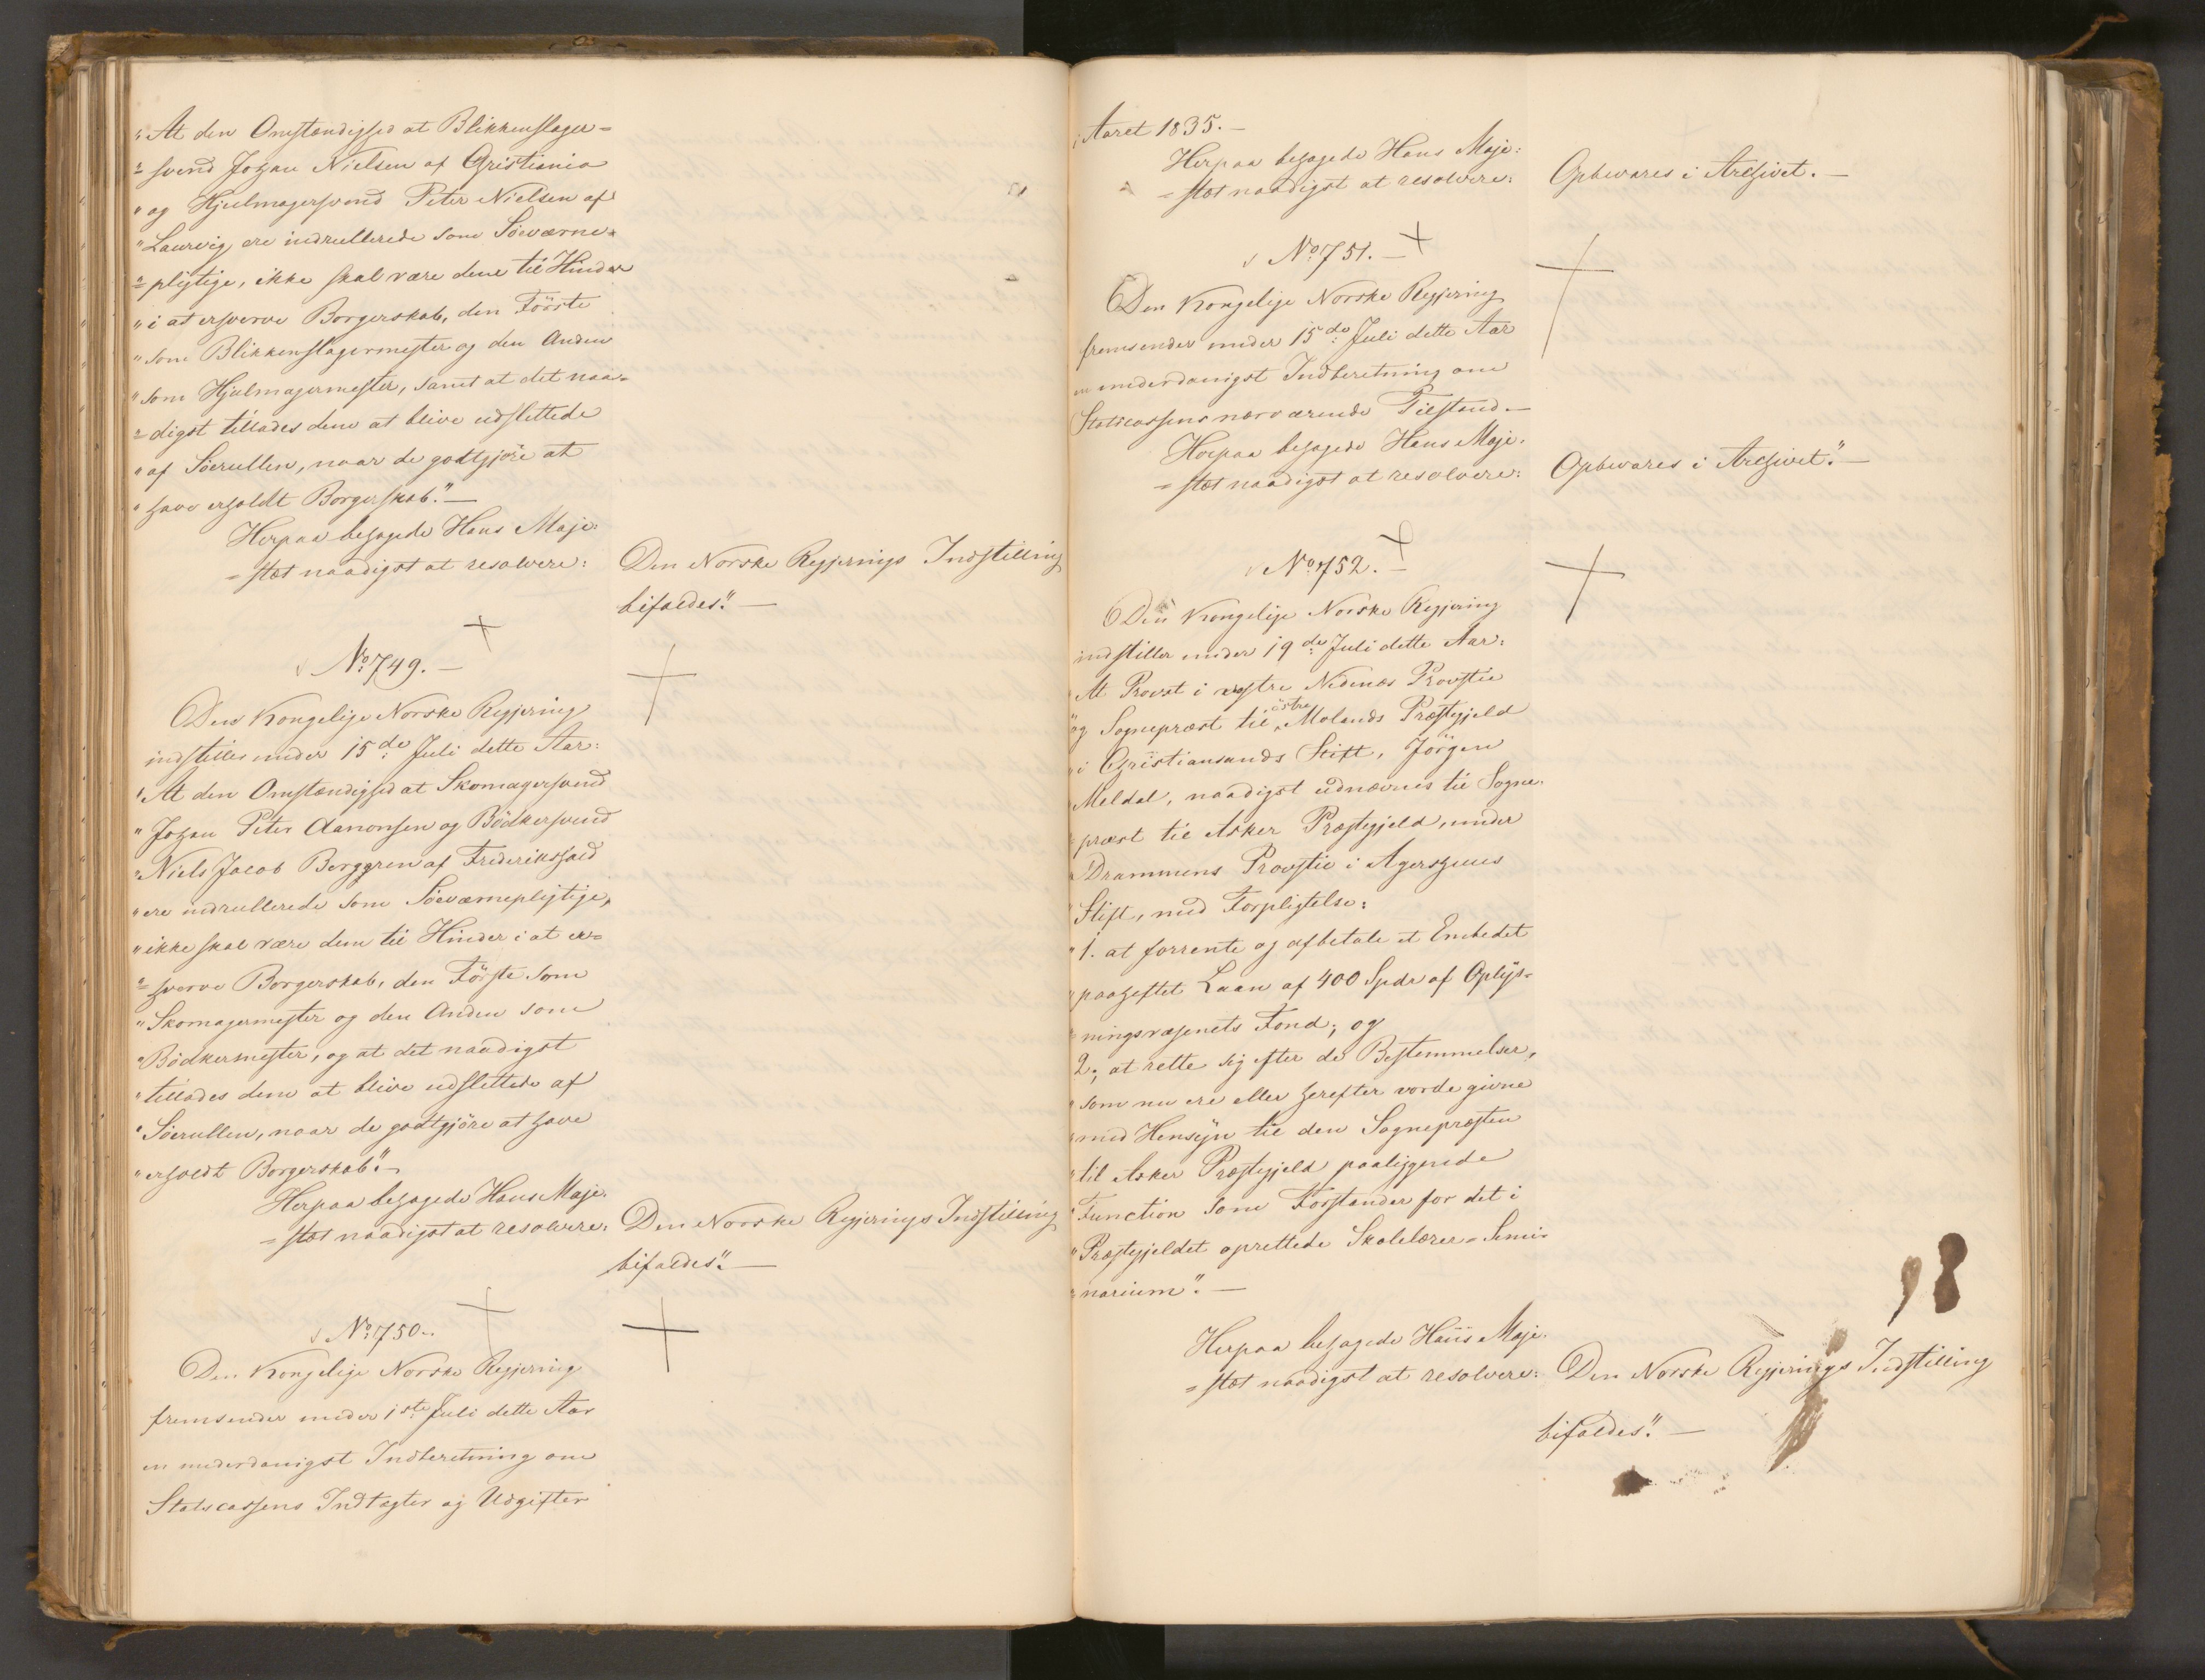 "At den Omstændighed at Blikkenslager=
=svend Johan Nielsen af Christiania
"og Hjulmagersvend Peter Nielsen af
"Laurvig, ere indrullerede som Söeværne=
=pligtige, ikke skal være dem til Hinder
"i at erhverve Borgerskab, den Förste
"som Blikkenslagermester og den Anden
"som Hjulmagermester, samt at det naa=
=digst tillades dem at blive udslettede
"af Söerullen, naar de godtgjöre at
"have erholdt Borgerskab."—
Herpaa behagede Hans Maje:
=stæt naadigst at resolvere:
Den Norske Regjerings Indstilling
bifaldes."—
No. 749.—
Den Kongelige Norske Regjering
indstiller under 15de Juli dette Aar:
"At den Omstændighed at Skomagersvend
"Johan Peter Aanonsen og Bödkersvend
"Niels Jacob Berggren af Frederikshald
"ere indrullerede som Söeværnepligtige,
"ikke skal være dem til Hinder i at er=
=hverve Borgerskab, den Förste som
"Skomagermester og den Anden som
"Bödkermester, og at det naadigst
"tillades dem at blive udslettede af
"Söerullen, naar de godtgjöre at have
"erholdt Borgerskab."—
Herpaa behagede Hans Maje:
=stæt naadigst at resolvere:
Den Norske Regjerings Indstilling
bifaldes."—
No. 750.—
Den Kongelige Norske Regjering
fremsender under 1ste Juli dette Aar
en underdanigst Indberetning om
Statscassens Indtægter og Udgifter
i Aaret 1835.—
Herpaa behagede Hans Maje:
=stæt naadigst at resolvere:
Opbevares i Archivet.—
No. 751.—
Den Kongelige Norske Regjering
fremsender under 15de Juli dette Aar
en underdanigst Indberetning om
Statscassens nærværende Tilstand.—
Herpaa behagede Hans Maje:
=stæt naadigst at resolvere:
Opbevares i Archivet."—
No. 752.—
Den Kongelige Norske Regjering
indstiller under 19de Juli dette Aar:
"At Provst i vestre Nedenæs Provstie
"og Sognepræst til östre Molands Præstegjeld
"i Christiansands Stift, Jörgen
Meldal, naadigst udnævnes til Sogne=
=præst til Asker Præstegjeld, under
"Drammens Provstie i Agershuus
"Stift, med Forpligtelse:
"1. at forrente og afbetale et Embedet
"paaheftet Laan af 400 Spdr af Oplys=
"ningsvæsenets Fond; og
2., at rette sig efter de Bestemmelser,
"som nu ere eller herefter vorde givne
"med Hensyn til den Sognepræsten
"til Asker Præstegjeld paaliggende
"Function som Forstander for det i
"Præstegjeldet oprettede Skolelærer=Semi=
=narium".—
Herpaa behagede Hans Maje:
=stæt naadigst at resolvere:
Den Norske Regjerings Indstilling
bifaldes."—